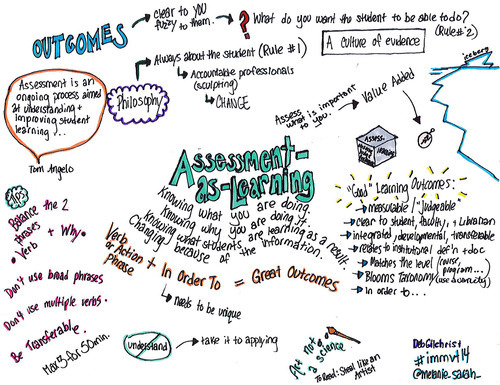 OUTCOMES
clear to you
fuzzy to them.
? What do you want the student to be able to do?
(Rule #2)
A culture of evidence
iceberg
Always about the student (Rule #1)
Accountable professionals
(sculpting)
CHANGE
Philosophy
Assessment is an
ongoing process aimed
at understanding +
improving student
learning )...
Tom Angelo
Assess
what is important
to you.
Value Added
ASSESS.
Assessment-
as-Learning
Knowing what you are doing.
Knowing why you are doing it.
Knowing what students are learning as a result.
Changing because of the information.
"Good" Learning Outcomes:
measurable / "Judgeable"
clear to student, faculty, + Librarian
integrated, developmental, transferable
relates to institutional def'n + doc
Matches the level (course,
program...)
Blooms Taxonomy
In order to...
TIPS
Balance the 2
phrases
Verb + Why.
Don't use broad phrases
Don't use multiple verbs.
Be Transferable.
Max 3 for 50 min.
Verb
or Action + In Order To = Great Outcomes
phrase
needs to be unique
understand
take it to applying
Art not
a science
To Read: Steal like an
Artist
Deb Gilchrist
#immv14
@melanie_sarah_